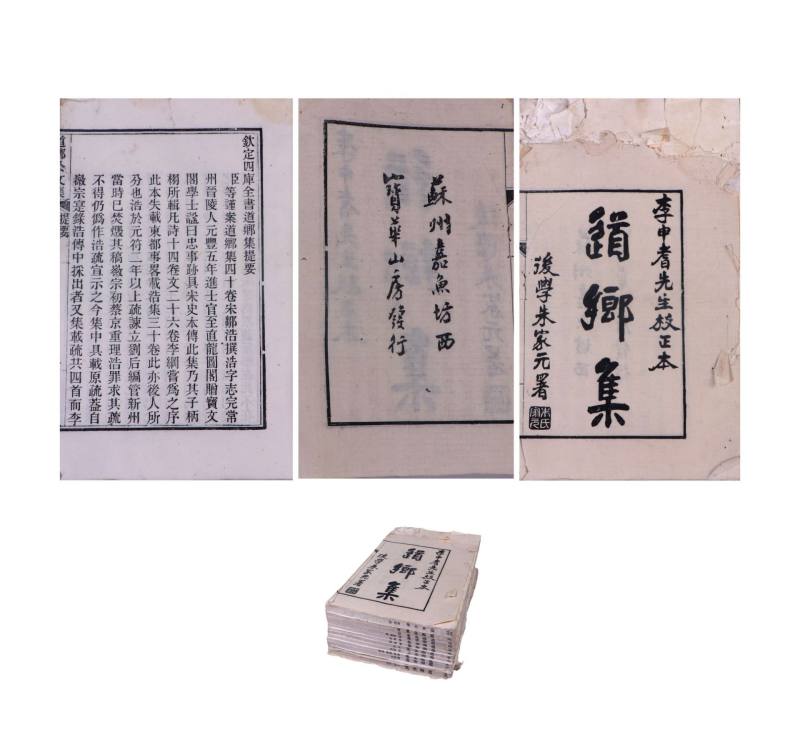 欽定四庫全書道鄉集提要
臣等謹案道鄉集四十卷宋鄒浩撰浩字志完常
州晉陵人元豐五年進士官至直龍圖閣贈寶文
閣學士諡曰忠事跡具宋史本傳此集乃其子柄
栩所輯凡詩十四卷文二十六卷李綱嘗爲之序
此本失載東都事畧載浩集三十卷此亦後人所
分也浩於元符二年以上疏諫立劉后編管新州
當時已焚燬其稿徽宗初蔡京重理浩罪求其疏
不得仍僞作浩疏宣示之今集中具載原疏葢自
徽宗寔錄浩傳中採出者又集載疏共四首而李
提要
蘇州嘉魚坊西
寶華山房發行
李申耆先生校正本
道鄉集
後學朱家元署
李申耆先生校正本
道鄉集
後學朱家元署